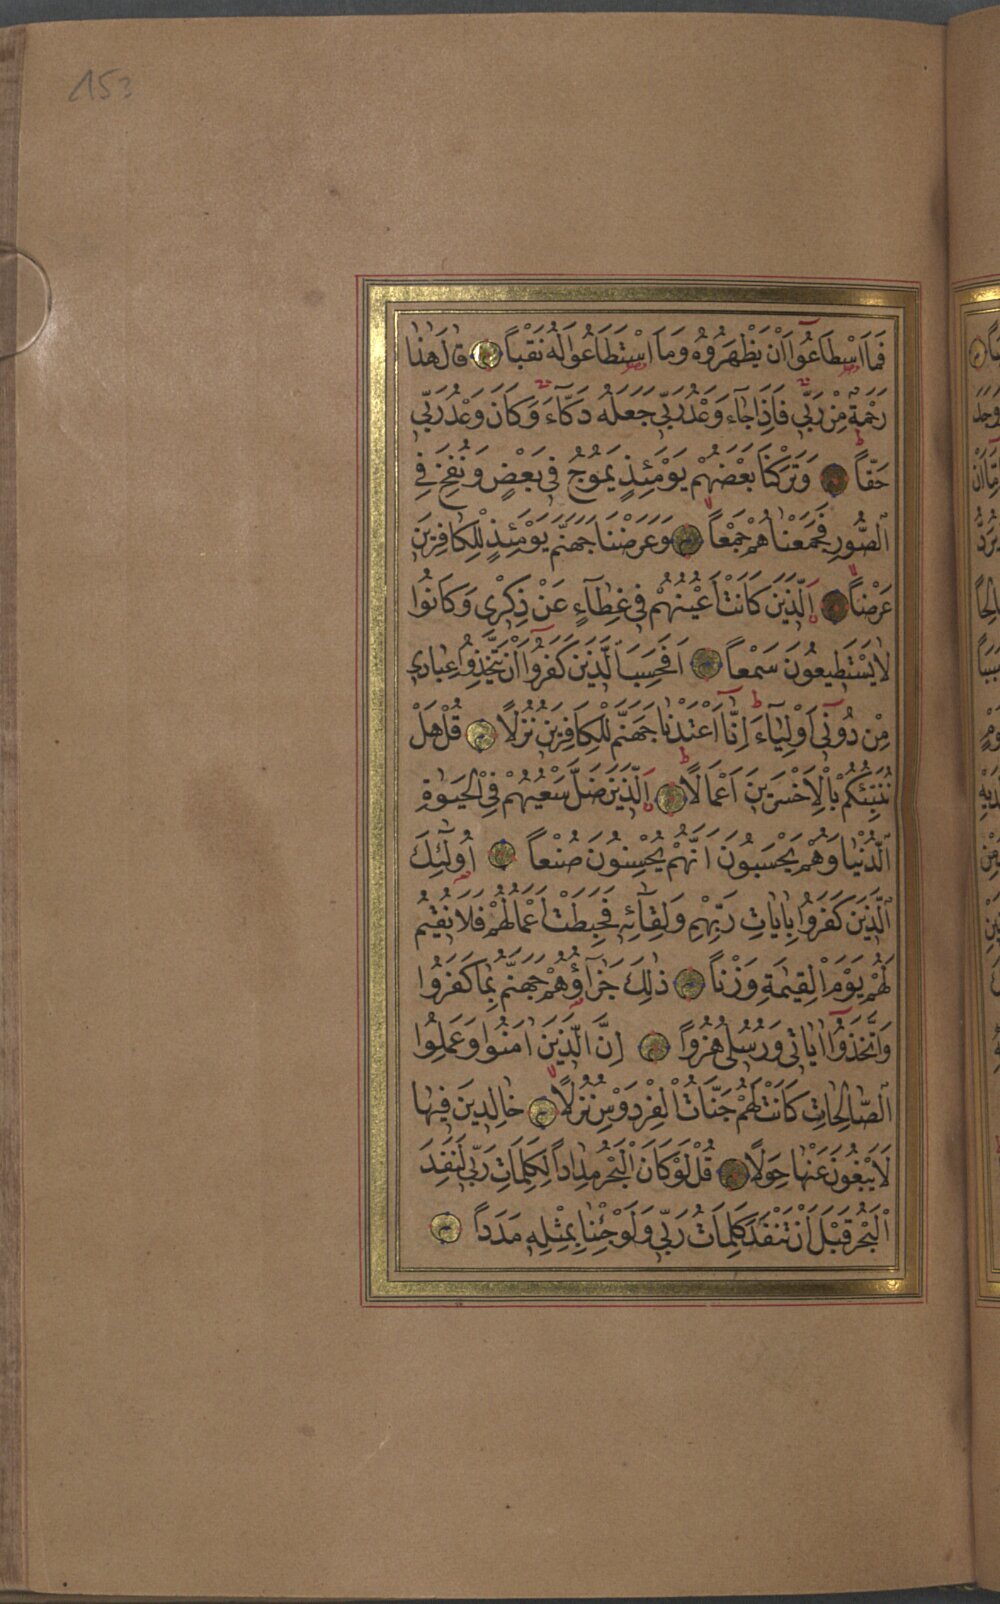 153
فَمَا اسْطَاعُٓوا اَنْ يَظْهَرُوهُ وَمَا اسْتَطَاعُوا لَهُ نَقْباً قٰالَ هٰذٰا
رَحْمَةٌ مِنْ رَبّ۪ي فَاِذَا جَٓاءَ وَعْدُ رَبّ۪ي جَعَلَهُ دَكَّٓاءَ وَكَانَ وَعْدُ رَبّ۪ي
حَقّاً وَتَرَكْنَا بَعْضَهُمْ يَوْمَئِذٍ يَمُوجُ ف۪ي بَعْضٍ وَنُفِخَ فِي
الصُّورِ فَجَمَعْنٰاهُمْ جَمْعاً وَعَرَضْنَا جَهَنَّمَ يَوْمَئِذٍ لِلْكٰافِر۪ينَ
عَرْضاً اَلَّذ۪ينَ كَانَتْ اَعْيُنُهُمْ ف۪ي غِطَٓاءٍ عَنْ ذِكْر۪ي وَكَانُوا
لٰا يَسْتَط۪يعُونَ سَمْعاً اَفَحَسِبَ الَّذ۪ينَ كَفَرُٓوا اَنْ يَتَّخِذُوا عِبٰاد۪ي
مِنْ دُون۪ٓي اَوْلِيَٓاءَ اِنَّٓا اَعْتَدْنٰا جَهَنَّمَ لِلْكَافِر۪ينَ نُزُلاً قُلْ هَلْ
نُنَبِّئُكُمْ بِالْاَخْسَر۪ينَ اَعْمَالاً اَلَّذ۪ينَ ضَلَّ سَعْيُهُمْ فِي الْحَيٰوةِ
الدُّنْيٰا وَهُمْ يَحْسَبُونَ اَنَّهُمْ يُحْسِنُونَ صُنْعاً اُو۬لٰٓئِكَ
الَّذ۪ينَ كَفَرُوا بِاٰيَاتِ رَبِّهِمْ وَلِقَٓائِه۪ فَحَبِطَتْ اَعْمَالُهُمْ فَلَا نُق۪يمُ
لَهُمْ يَوْمَ الْقِيٰمَةِ وَزْناً ذٰلِكَ جَزَٓاؤُهُمْ جَهَنَّمُ بِمٰا كَفَرُوا
وَاتَّخَذُٓوا اٰيَات۪ي وَرُسُل۪ي هُزُواً اِنَّ الَّذ۪ينَ اٰمَنُوا وَعَمِلُوا
الصَّالِحَاتِ كَانَتْ لَهُمْ جَنَّاتُ الْفِرْدَوْسِ نُزُلاً خٰالِد۪ينَ ف۪يهٰا
لَا يَبْغُونَ عَنْهٰا حِوَلاً قُلْ لَوْ كَانَ الْبَحْرُ مِدٰاداً لِكَلِمَاتِ رَبّ۪ي لَنَفِدَ
الْبَحْرُ قَبْلَ اَنْ تَنْفَدَ كَلِمَاتُ رَبّ۪ي وَلَوْ جِئْنٰا بِمِثْلِه۪ مَدَداً